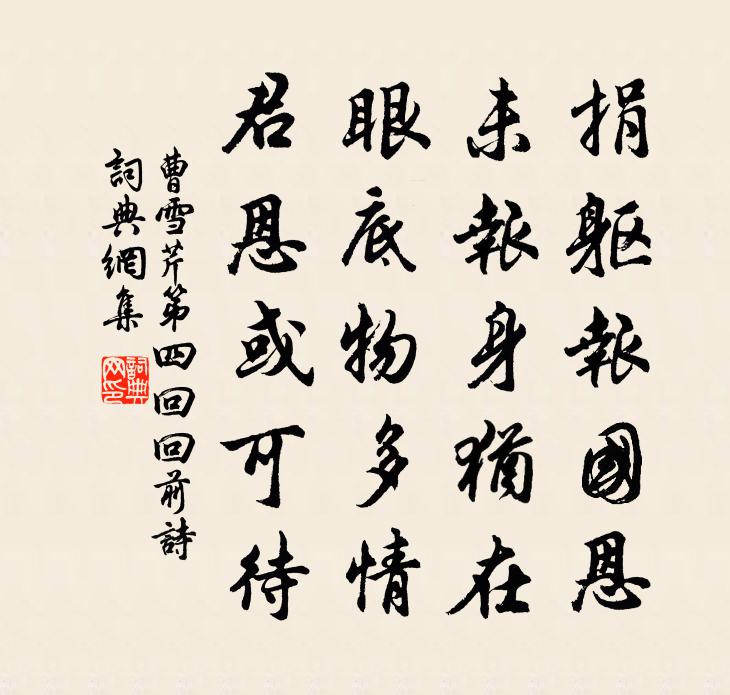 捐軀報國恩
未報身猶在
眼底物多情
君恩或可待
曹雪芹第四回回前詩
詞典網集
詞典網印